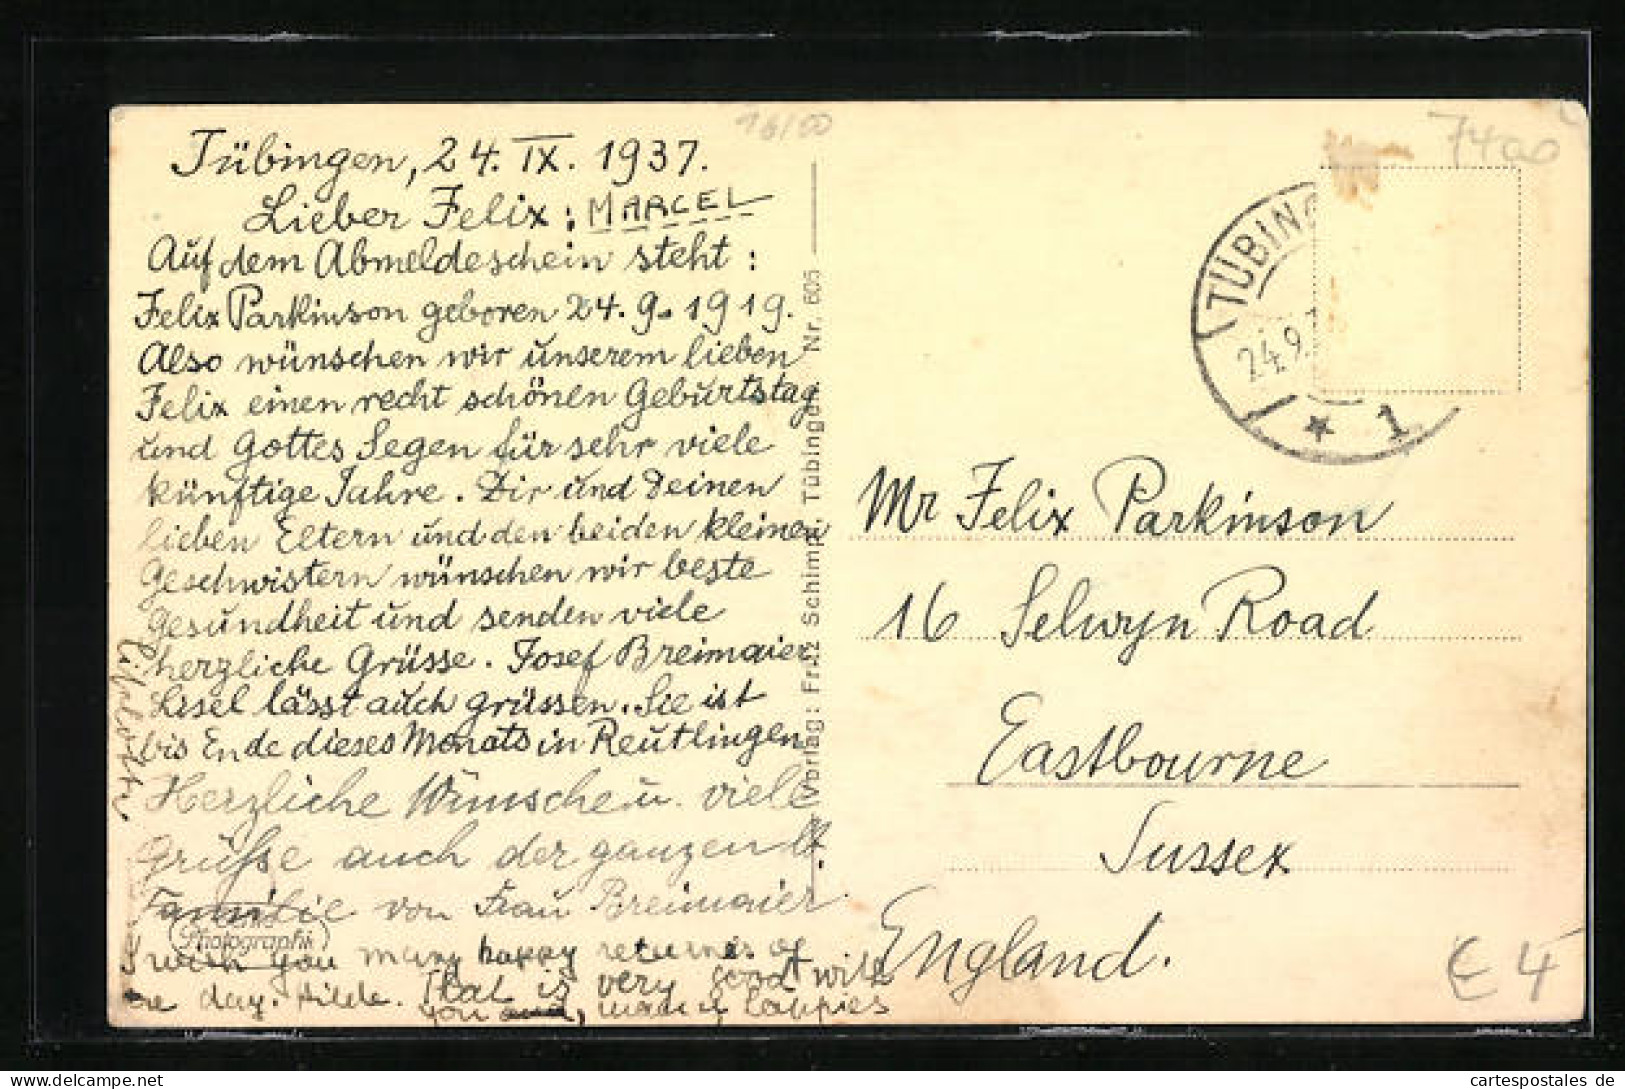 Tübingen, 24. IX. 1937.
Lieber Felix : MARCEL
Auf dem Abmeldeschein steht :
Felix Parkinson geboren 24. 9. 1919.
Also wünschen wir unserem lieben
Felix einen recht schönen Geburtstag
und Gottes Segen für sehr viele
künftige Jahre. Dir und Deinen
lieben Eltern und den beiden kleinen
Geschwistern wünschen wir beste
Gesundheit und senden viele
herzliche Grüsse. Josef Breimaier
Lisel lässt auch grüssen. Sie ist
bis Ende dieses Monats in Reutlingen
Herzliche Wünsche u. viele
Grüße auch der ganzen lb.
Familie von Frau Breimaier.
I wish you many happy returnes of
the day. Hilde. That is very good with
you and, many happies
Echte
Photographie
Verlag: Franz Schimpf, Tübingen Nr. 605
16/00
7400
TÜBING
24.9.
* 1
Mr Felix Parkinson
16 Selwyn Road
Eastbourne
Sussex
England.
€ 4
www.cartespostales.de
cartespostales de